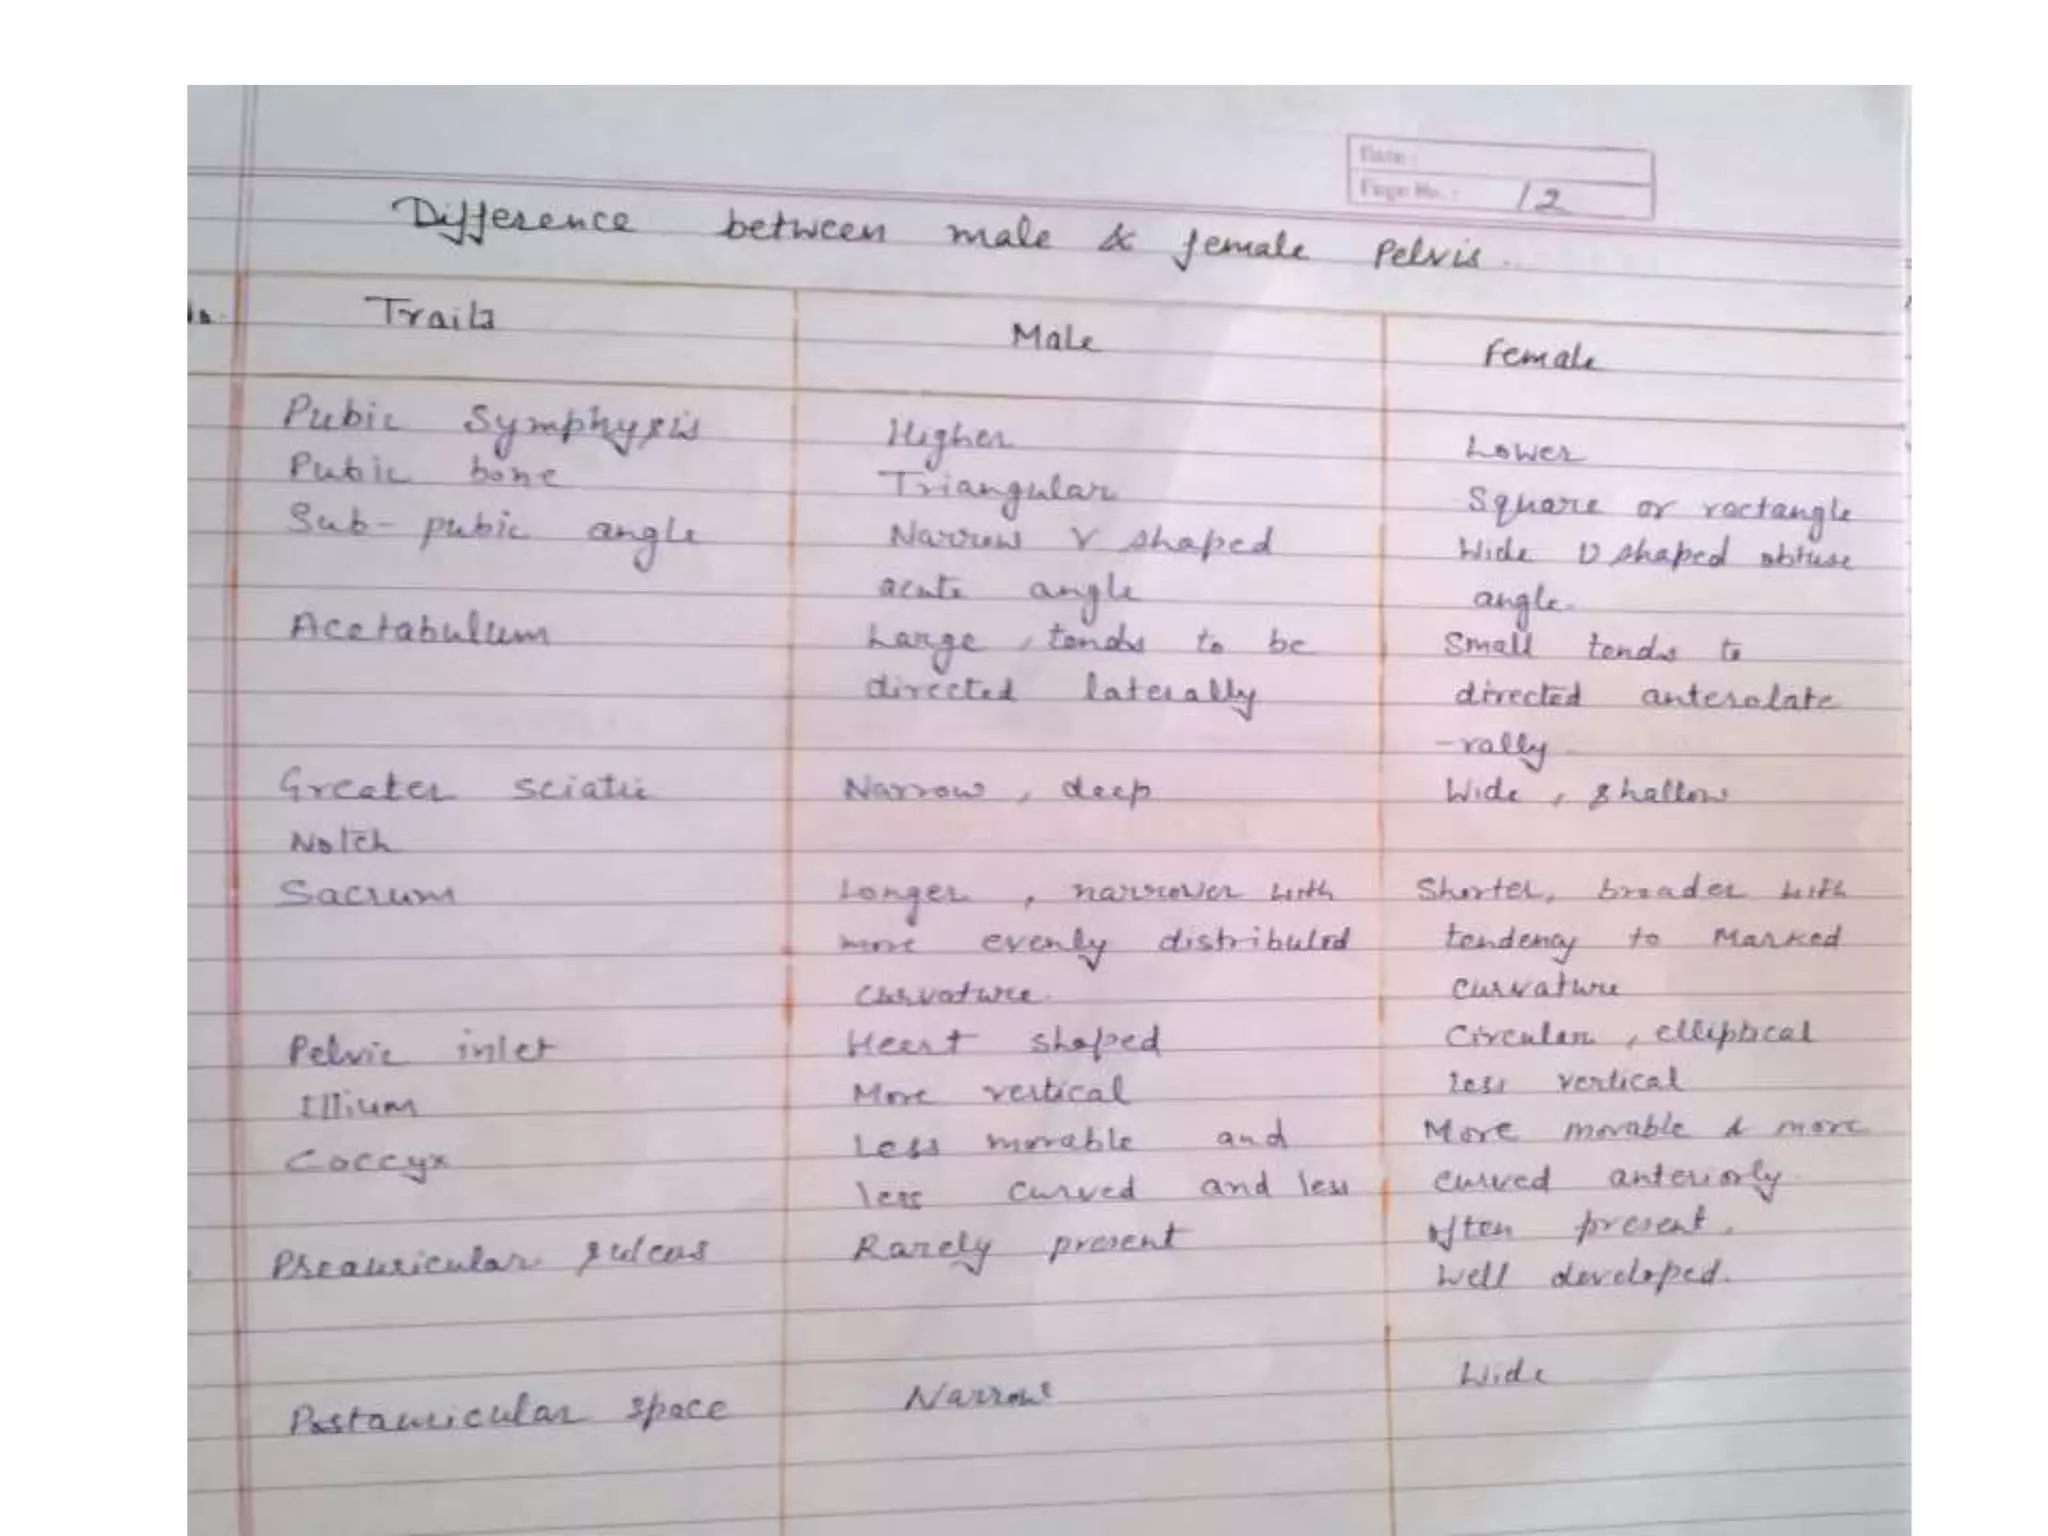 Date :
Page No. : 12
Difference between male & female Pelvis.
Traits Male Female
Pubic Symphysis Higher Lower
Pubic bone Triangular Square or rectangle
Sub- pubic angle Narrow V shaped Wide U shaped obtuse
acute angle angle.
Acetabulum Large, tends to be Small tends to
directed laterally directed anterolate
-rally
Greater sciatic Narrow, deep Wide, shallow
Notch
Sacrum Longer, narrower with Shorter, broader with
more evenly distributed tendency to Marked
curvature. curvature
Pelvic inlet Heart shaped Circular, elliptical
Illium More vertical less vertical
Coccyx Less movable and More movable & more
less curved and less curved anteriorly.
Preauricular sulcus Rarely present often present.
Well developed.
Postauricular space Narrow Wide